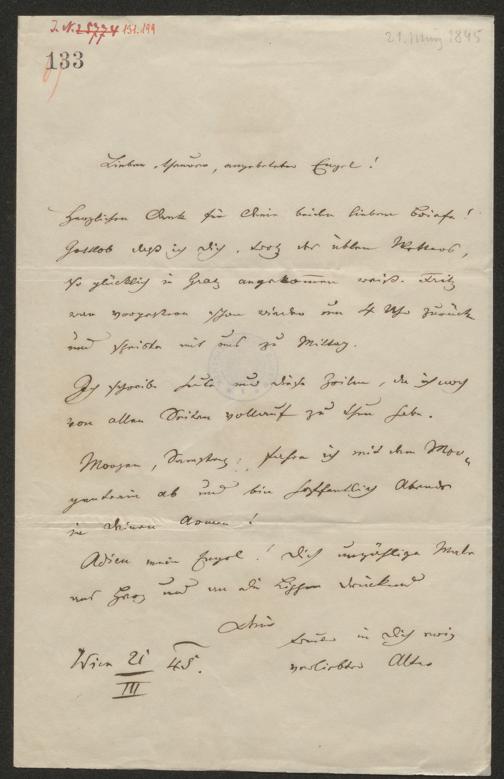 J. N. 25334 151.199
21. März 1845
133
Lieber, theurer, angebeteter Engel!
Herzlichen Dank für Deine beiden lieben Briefe!
Gottlob daß ich Dich, trotz des üblen Wetters,
so glücklich in Graz angekommen weiß. Fritz
war vorgestern schon wieder um 4 Uhr zurück
und speiste mit uns zu Mittag.
Ich schreibe heute nur diese Zeilen, da ich noch
von allen Seiten vollauf zu thun habe.
Morgen, Samstag, fahre ich mit dem Mor-
gentrain ab und bin hoffentlich Abends
in Deinen Armen!
Adieu mein Engel! Dich unzählige Male
ans Herz und an die Lippen drückend
Dein
treuer in Dich ewig
verliebter Alter
Wien 21/III 45.